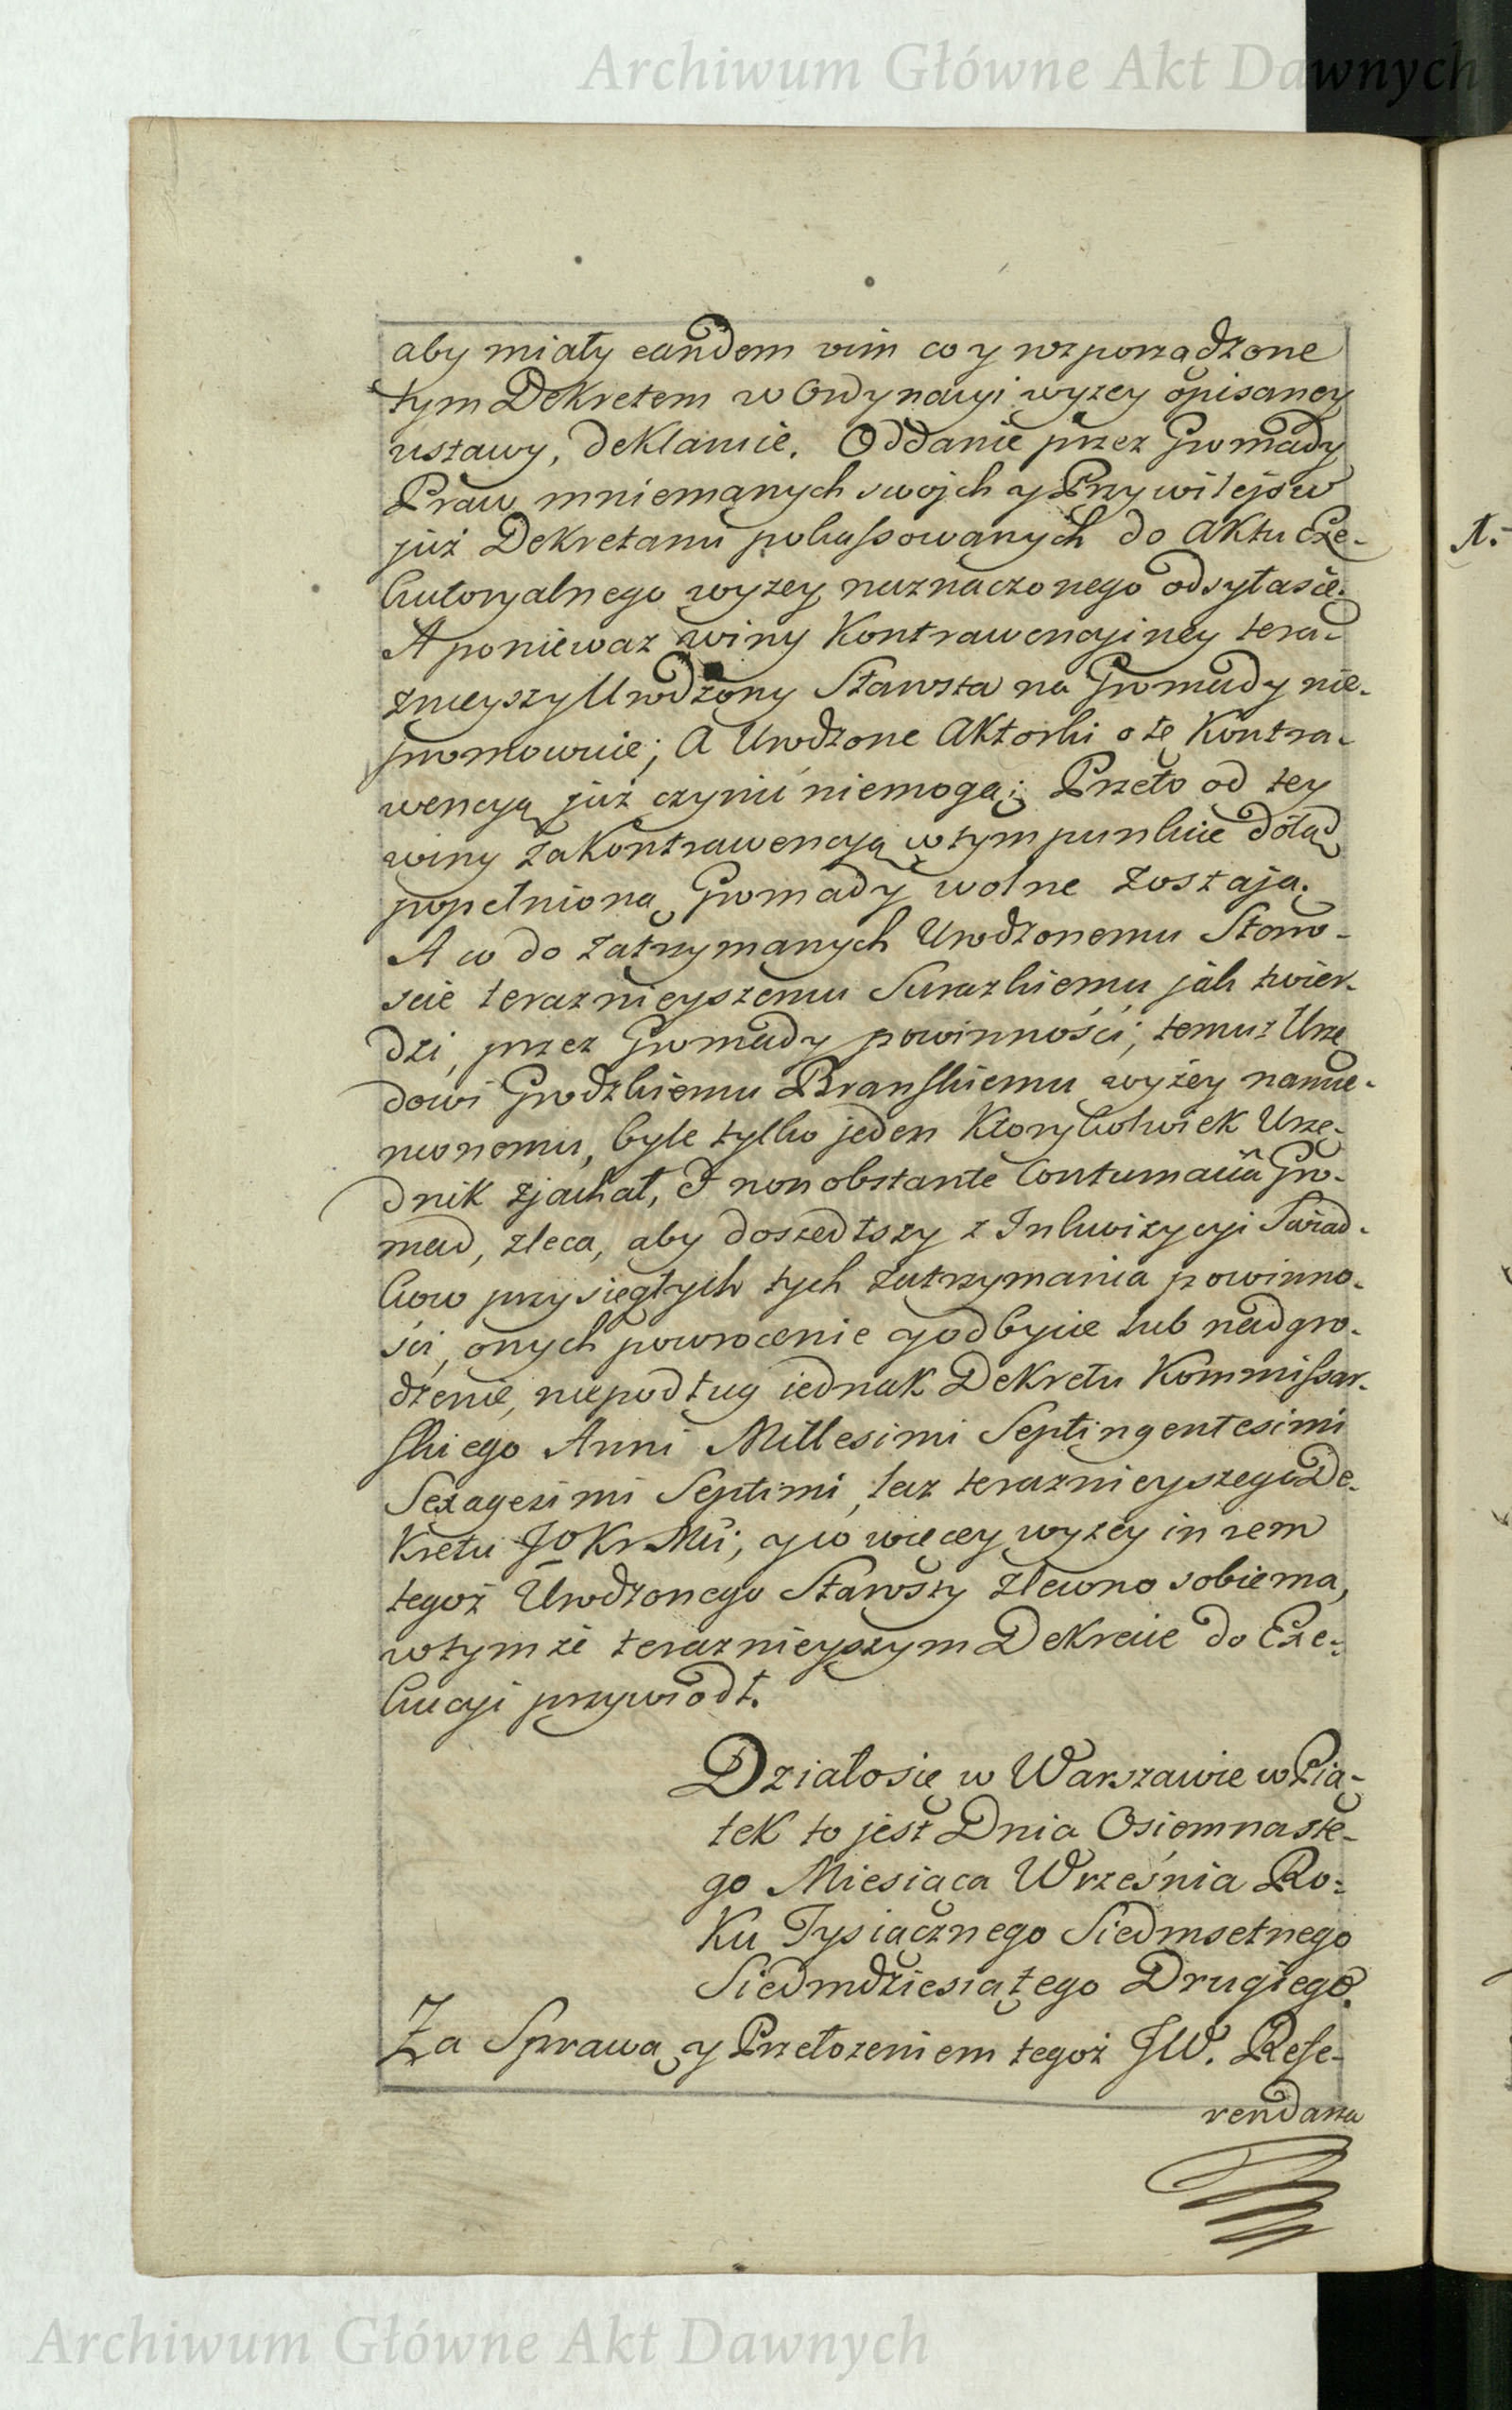 Archiwum Główne Akt Dawnych
aby miały eandem vim co y rozporządzone
tym Dekretem w Ordynacyi wyzey opisaney
ustawy, deklaruie. Oddanie przez Gromady
Praw mniemanych swojch y Przywilejow
już Dekretami pokassowanych do Aktu Exe-
kutoryalnego wyzey naznaczonego odsyłasię.
A ponieważ winy Kontrawencyiney tera-
znieyszy Urodzony Starosta na Gromady nie-
promowuie; A Urodzone Aktorki o tę Kontra-
wencyą już czynić niemogą; Przeto od tey
winy za Kontrawencyą w tym punkcie dotąd
popełnioną Gromady wolne zostają.
A co do zatrzymanych Urodzonemu Staro-
scie teraznieyszemu Surazkiemu jak twier-
dzi, przez Gromady powinności; temuż Urzę
dowi Grodzkiemu Branskiemu wyżey namie-
nionemu, byle tylko jeden Ktorykolwiek Urzę-
dnik zjachał, & non obstante Contumacia Gro-
mad, zleca, aby doszedłszy z Inkwizycyi Swiad-
kow przysięgłych tych zatrzymania powinno-
ści, onych powrocenie y odbycie lub nadgro-
dzenie, niepodług iednak Dekretu Kommissar-
skiego Anni Millesimi Septingentesimi
Sexagesimi Septimi, lecz teraznieyszego De-
kretu JoKrMci; y co więcey wyzey in rem
tegoż Urodzonego Starosty zlecono sobie ma,
w tymże teraznieyszym Dekrecie do Exe-
kucyi przywiodł.
Działosię w Warszawie w Pią-
tek to jest Dnia Osiemnaste-
go Miesiąca Września Ro-
ku Tysiącznego Siedmsetnego
Siedmdziesiątego Drugiego.
Za Sprawą y Przełożeniem tegoż JW. Refe-
rendarza
1.
Archiwum Główne Akt Dawnych